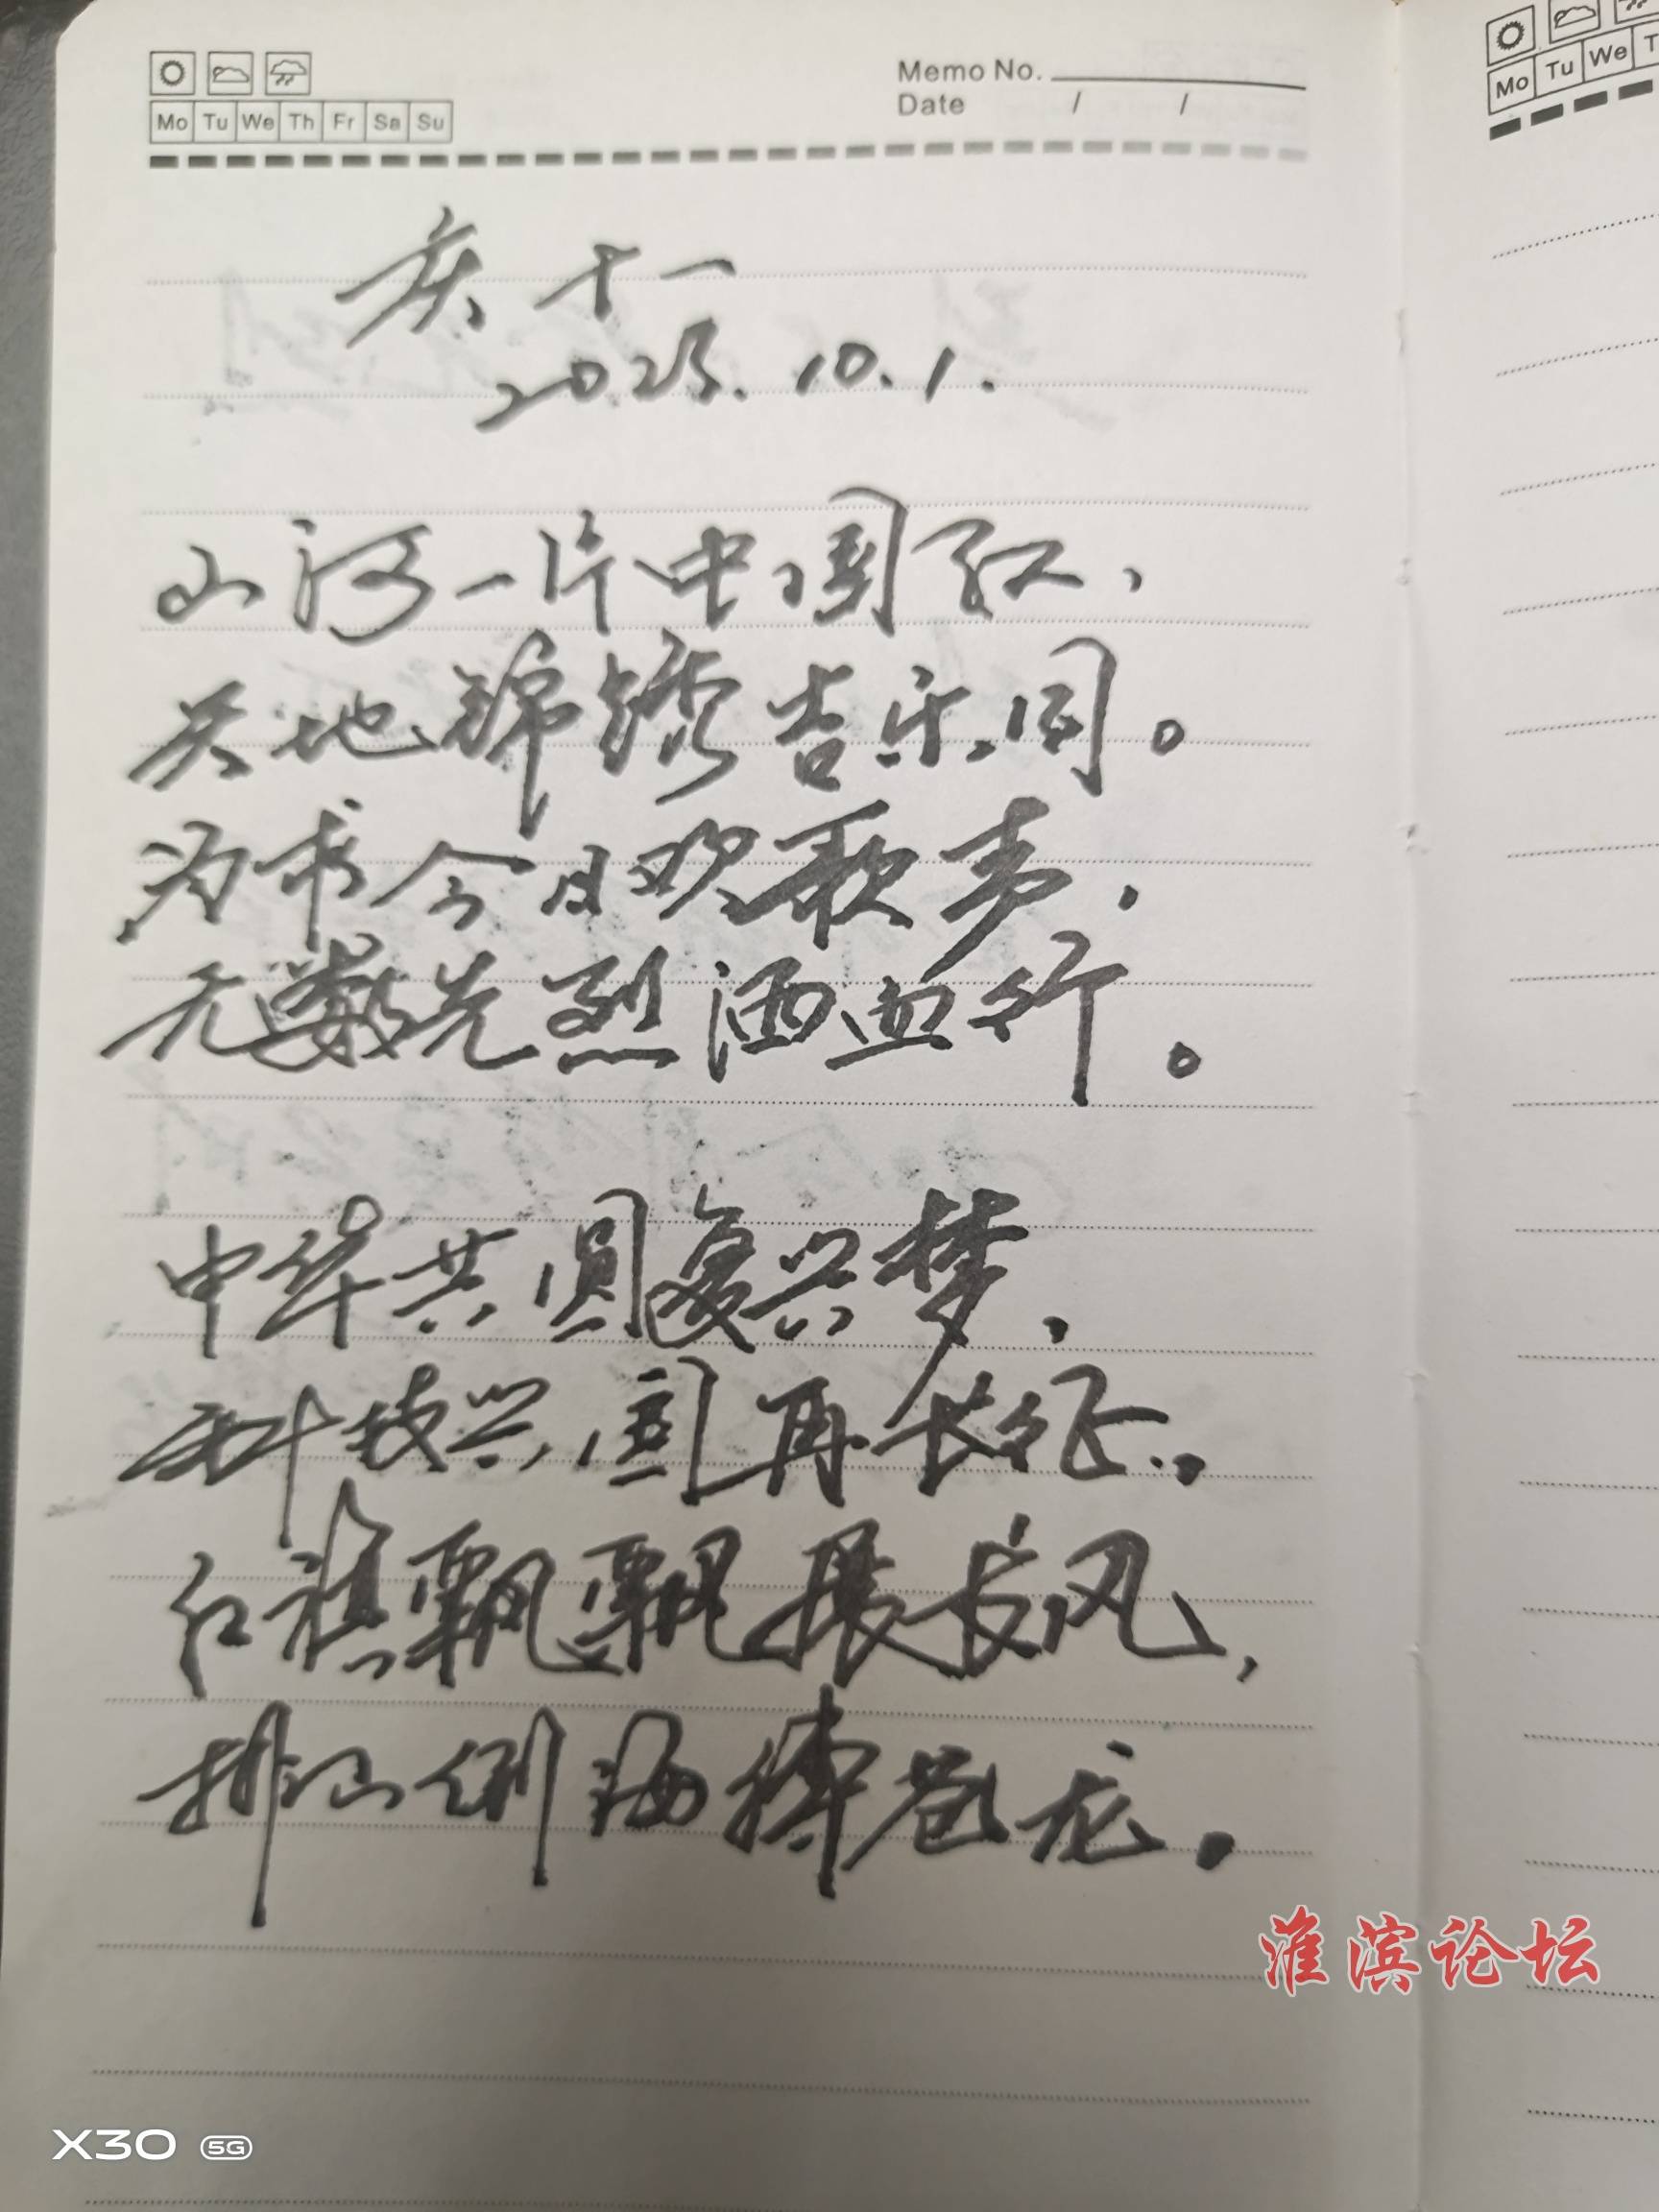 Memo No.
Mo Tu We Th Fr Sa Su
Date / /
Mo Tu We
庆十一
2023.10.1.
山河一片中国红,
天地锦绣吉乐同。
为求今日欢歌声,
无数先烈洒血行。
中华共圆复兴梦,
科技兴国再长征.
红旗飘飘展长风,
排山倒海搏苍龙.
淮滨论坛
X30 5G